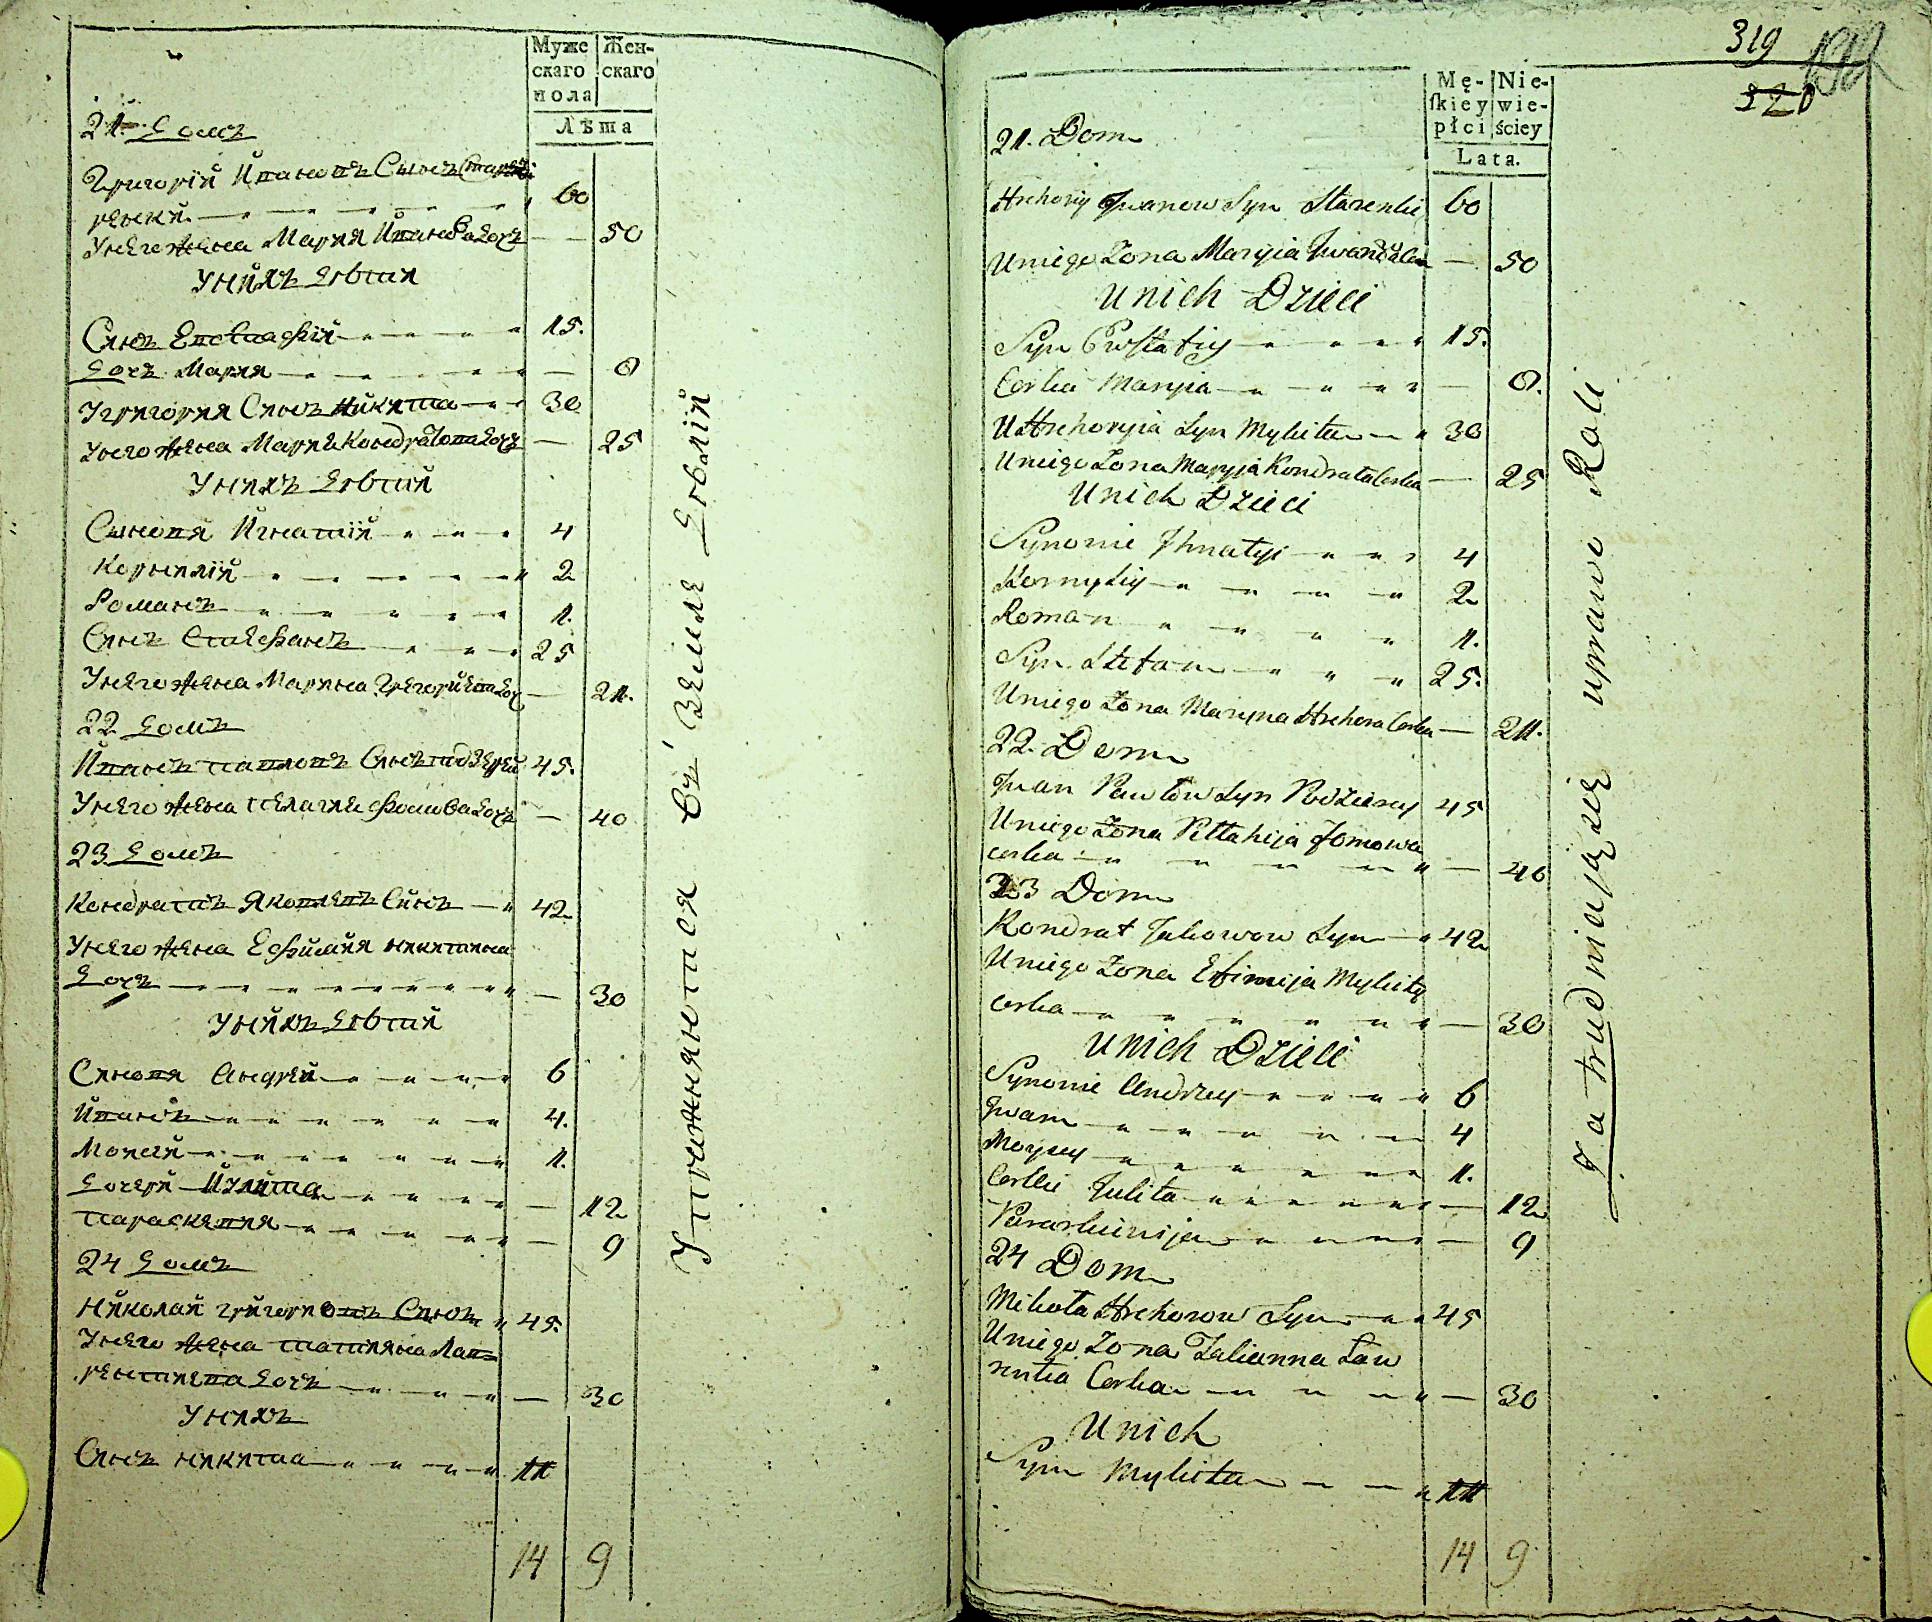 Муже
скаго
пола
Жен-
скаго
Лѣта
21. Домъ
Григорій Ивановъ Сынъ Старѣ
ренкій 60
У него жена Марія Иванова дочь — 50
У нихъ дѣтий
Сынъ Евстафій 15.
Дочь Марія — 8
У Григорія Сынъ Никита 30
У него жена Марія Кондратова дочь — 25
У нихъ дѣтий
Сыновя Игнатій 4
Корнилій 2
Романъ 1.
Сынъ Стефанъ 25
У него жена Марина Григориева доч — 21.
22 Домъ
Иванъ Павловъ Сынъ Подзерей 45.
У него жена Пелагия Фомова дочь — 40
23 Домъ
Кондратъ Яковлевъ Сынъ 42
У него жена Ефимия Никитина
дочь — 30
У нихъ дѣтий
Сыновя Андрей 6
Иванъ 4.
Мойсей 1.
Дочери Иулита — 12
Параскевия — 9
24 Домъ
Николай Григориовъ Сынъ 45.
У него жена Татияна Лав=
рентиева дочь — 30
У нихъ
Сынъ Никита 11
14 9
Упражняются въ Земле дѣлій
319
320
Mę-
skiey
płci
Nie-
wie-
ściey
Lata.
21. Dom
Hrehory Jwanow Syn Starenki 60
U niego Żona Maryia Jwana Cor — 50
U nich Dzieci
Syn Ewstafiy 15.
Corka Maryia — 8.
U Hrehoryia Syn Mykita 30
U niego Żona Maryja Kondrata Corka — 25
U nich Dzieci
Synowie Jhnatyi 4
Kornyliy 2
Roman 1.
Syn Stefan 25.
U niego Żona Maryna Hrehora Corka — 21.
22. Dom
Jwan Pawłow Syn Podzierey 45
U niego Żona Pełłahija Fomowa
corka — 40
23 Dom
Kondrat Jakowow Syn 42
U niego Żona Efimija Mykity
corka — 30
U nich Dzieci
Synowie Andrzey 6
Jwan 4
Moysey 1.
Corki Julita — 12
Paraskiewija — 9
24 Dom
Mikoła Hrehorow Syn 45
U niego Żona Talianna Ław
rentia Corka — 30
U nich
Syn Mykita 11
14 9
Zatrudniają się uprawi Roli